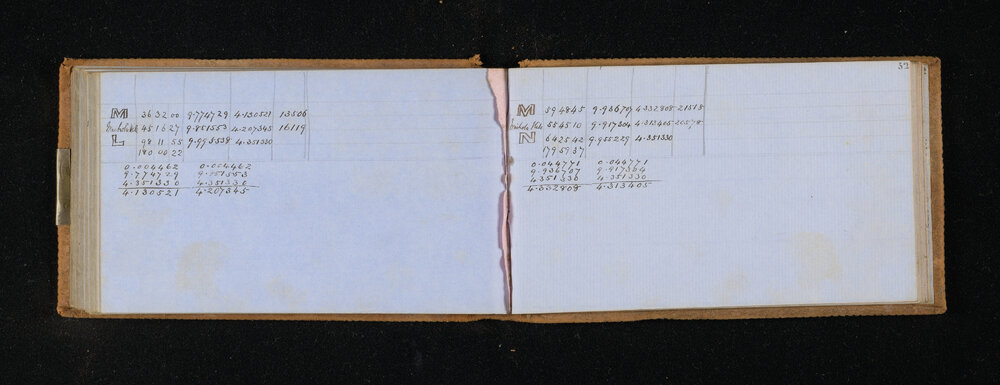 M 36 32 00 9.774729 4.130521 13506
45 16 27 9.851553 4.207345 16119
L 98 11 55 9.995538 4.351330
180 00 22
0.004462 0.004462
9.774729 9.851553
4.351330 4.351330
4.130521 4.207345
52
M 59 48 45 9.936707 4.332808 21518
55 45 10 9.917304 4.313405 20578
N 64 25 42 9.955229 4.351330
179 59 37
0.044771 0.044771
9.936707 9.917304
4.351330 4.351330
4.332808 4.313405